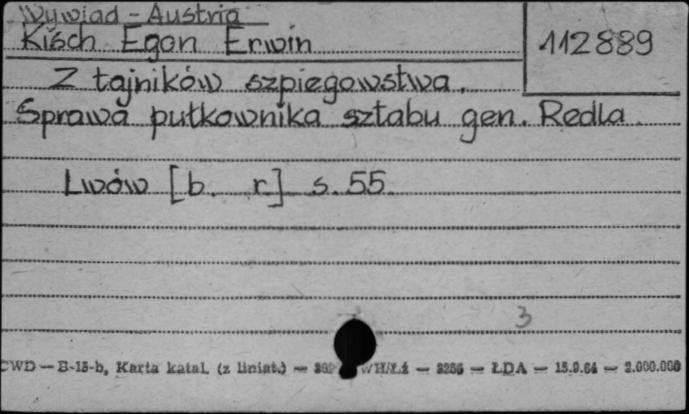 Wywiad - Austria
Kisch Egon Erwin
112889
Z tajników szpiegowstwa.
Sprawa pułkownika sztabu gen. Redla
Lwów [b. r] s. 55.
3
CWD — B-15-b, Karta katal. (z liniat.) — WH/Łź — 3256 — ŁDA — 15.9.64 — 2.000.000